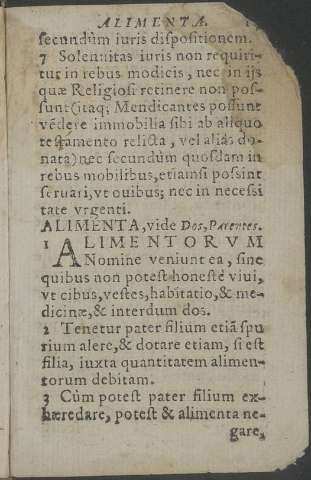 ALIMENTA.
secundùm iuris dispositionem.
7 Solennitas iuris non requiri-
tur in rebus modicis, nec in ijs
quæ Religiosi retinere non pos-
sunt (itaq; Mendicantes possunt
vẽdere immobilia sibi ab aliquo
testamento relicta, vel aliàs do-
nata) nec secundùm quosdam in
rebus mobilibus, etiamsi possint
seruari, vt ouibus; nec in necessi
tate vrgenti.
ALIMENTA, vide Dos, Parentes.
1 ALIMENTORVM
Nomine veniunt ea, sine
quibus non potest honestè viui,
vt cibus, vestes, habitatio, & me-
dicinæ, & interdum dos.
2 Tenetur pater filium etiã spu
rium alere, & dotare etiam, si est
filia, iuxta quantitatem alimen-
torum debitam.
3 Cùm potest pater filium ex-
hæredare, potest & alimenta ne-
gare,